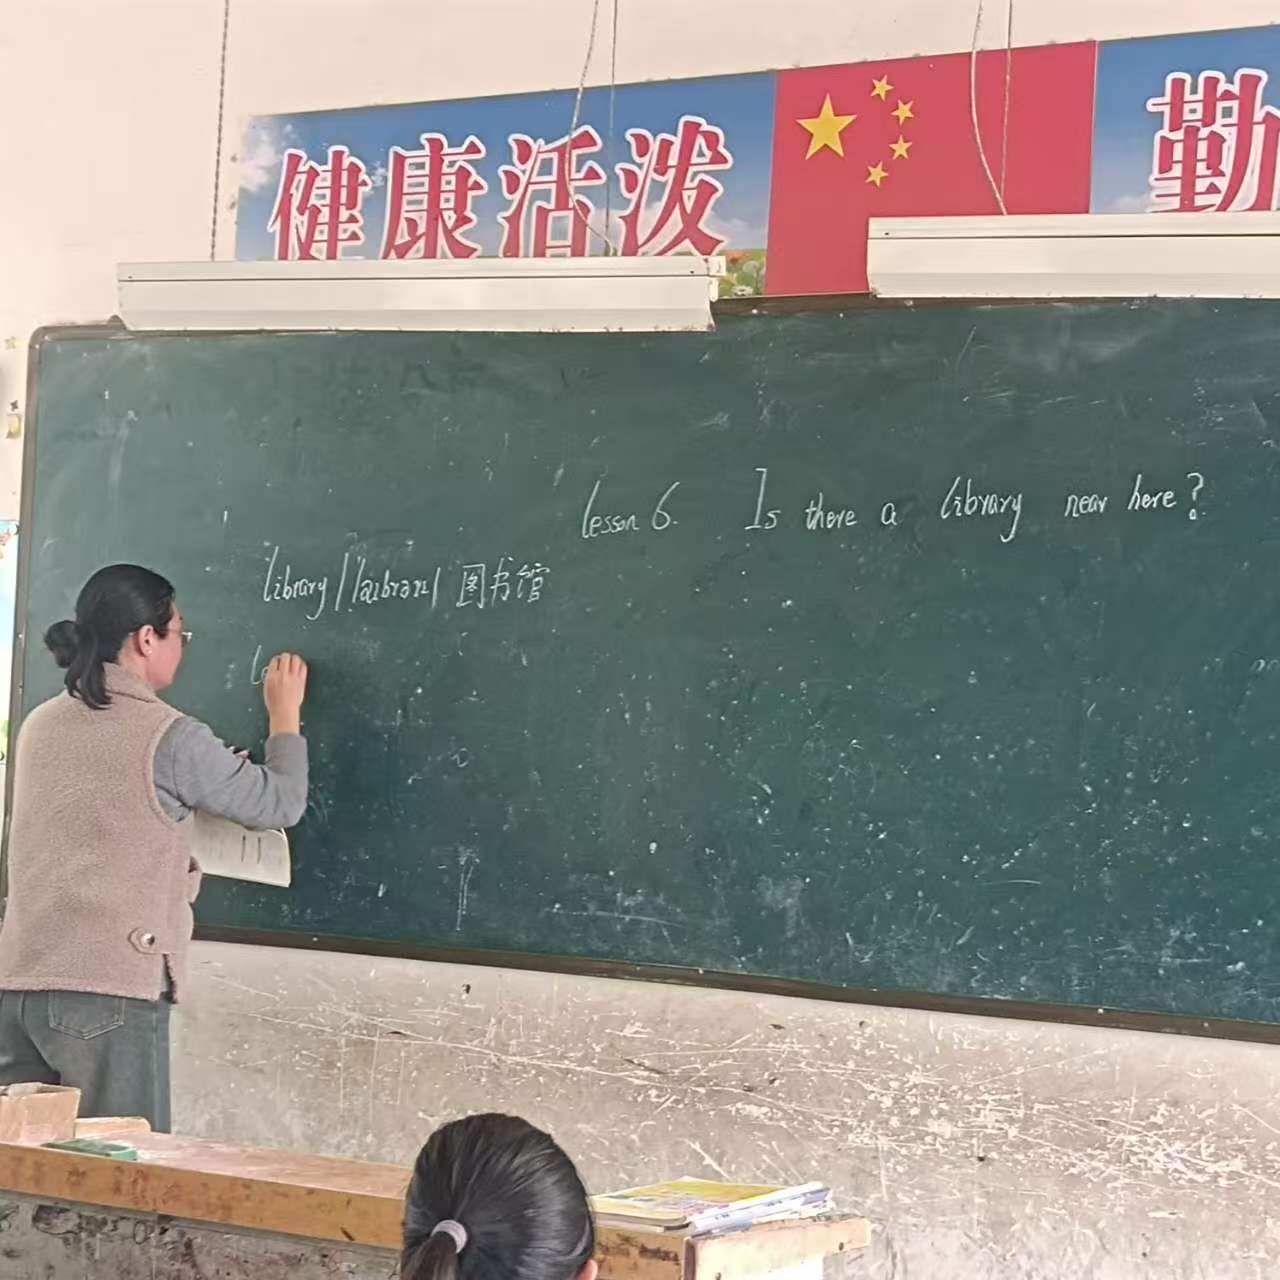 健康活泼
勤
lesson 6. Is there a library near here?
library /'laɪbrərɪ/ 图书馆